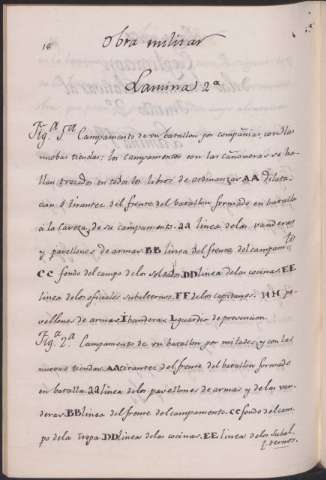 18
Obra militar
Lamina 2ª
Fig.ª 1ª Campamento de un batallon por compañias, con las
nuebas tiendas; los campamentos con las cañoneras se ha-
llan trazados en todos los libros de ordenanzas AA dilata-
cian ó tirantez del frente del batallon formado en batalla
á la caveza, de su campamento. aa linea de las vanderas
y pavellones de armas. BB linea del frente del campamto
CC fondo del campo de los soldados. DD linea de las cocinas. EE
linea de los oficiales subalternos. FF de los capitanes. HH pa-
vellones de armas I banderas. L guardia de prevencion.
Fig.ª 2ª Campamento de un batallon por mitades, y con las
nuevas tiendas. AA tirantez del frente del batallon formado
en batalla. aa linea de los pavellones de armas y de las van-
deras. BB linea del frente del campamento. CC fondo del cam-
po de la tropa. DD linea de las cocinas. EE linea de los subal-
ternos.